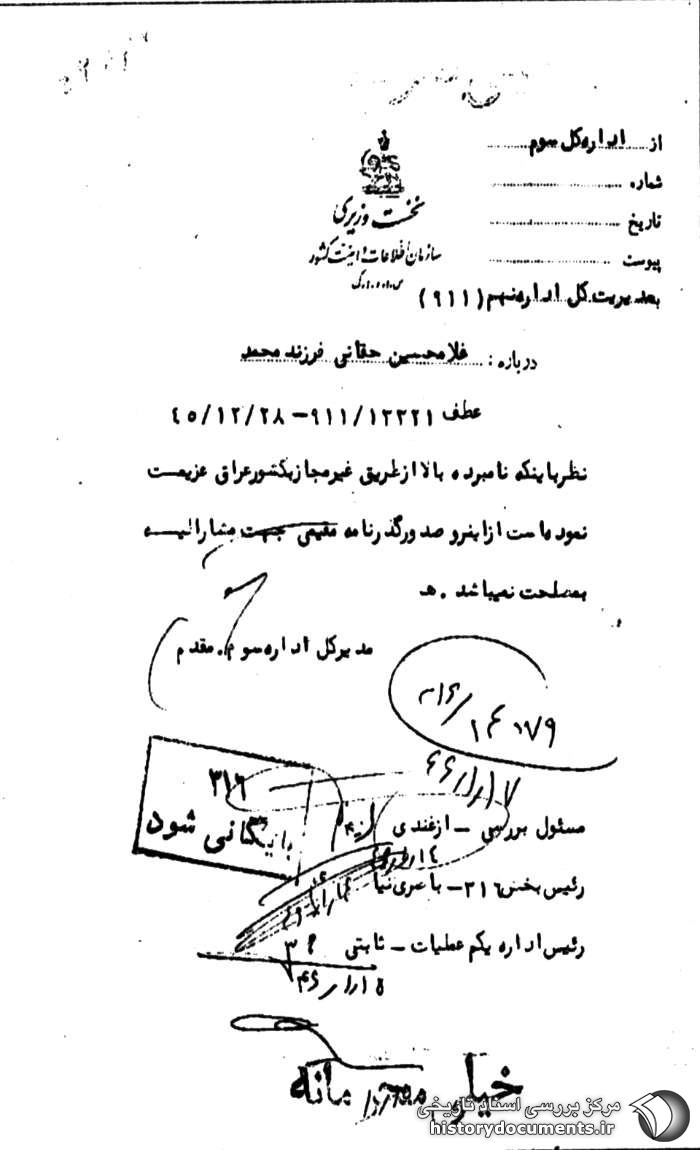 از اداره کل سوم
شماره
تاریخ
پیوست
نخست وزیری
سازمان اطلاعات و امنیت کشور
س.ا.و.ا.ک
بمدیریت کل اداره نهم (۹۱۱)
درباره : غلامحسین حقانی فرزند محمد
عطف ۹۱۱/۱۲۲۲۱-۴۵/۱۲/۲۸
نظر باینکه نامبرده بالا از طریق غیر مجاز بکشور عراق عزیمت
نموده است از اینرو صدور گذرنامه مقیمی جهت مشارالیه
بمصلحت نمیباشد . ه
مدیر کل اداره سوم . مقدم
۳۱۶/
۴۶/۱/۱۷
۳۱۶
بایگانی شود
مسئول بررسی - ازغندی
رئیس بخش ۳۱۶ - باصری نیا
رئیس اداره یکم عملیات - ثابتی
۴۶/۱/۱۵
خیلی محرمانه
مرکز بررسی اسناد تاریخی
historydocuments.ir